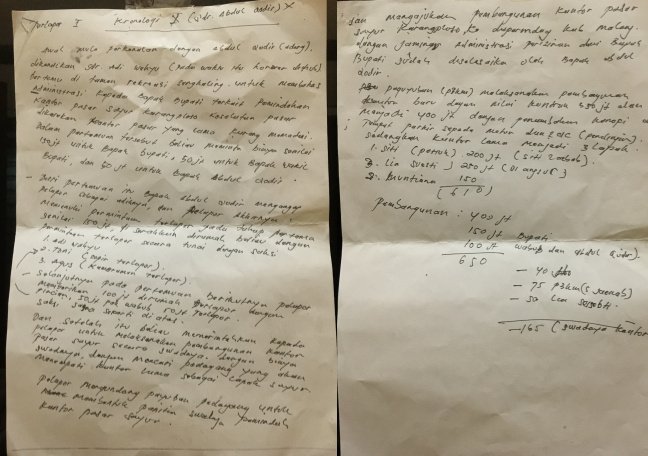 Terlapor I Kronologi I (Sdr. Abdul Qodir) X
Awal mula perkenalan dengan Abdul Qodir (Adeng).
dikenalkan sdr. Adi Wahyu (pada waktu itu
bertemu di taman rekreasi Sengkaling. Untuk membahas
administrasi kepada Bapak Bupati terkait pemindahan
kantor pasar sayur Karangploso kesebelah pasar
dikarenakan kantor pasar yang lama kurang memadai.
Dalam pertemuan tersebut beliau meminta biaya senilai
150 jt untuk Bapak Bupati, 50 jt untuk Bapak Wakil
Bupati, dan 50 jt untuk Bapak Abdul Qodir.
- Dari pertemuan itu Bapak Abdul Qodir menganggap
pelapor sebagai adiknya, dan pelapor akhirnya
memenuhi permintaan terlapor pada tahap pertama
senilai 150 jt diserahkan dirumah beliau dengan
permintaan terlapor secara tunai dengan saksi
1. Adi Wahyu
2. Toni (sopir terlapor).
3. Agus (keponakan terlapor).
- Selanjutnya pada pertemuan berikutnya pelapor
memberikan 100 jt dirumah terlapor dengan
rincian, 50 jt pak wabub 50 jt terlapor.
saksi sama seperti di atas.
Dan setelah itu beliau memerintahkan kepada
pelapor untuk melaksanakan pembangunan kantor
pasar sayur secara swadaya. dengan biaya
swadaya dengan mencari pedagang yang akan
menempati kantor lama sebagai lapak sayur.
pelapor mengundang paguyuban pedagang untuk
membentuk panitia swadaya pemindah
kantor pasar sayur.
dan mengajukan pembangunan kantor pasar
sayur Karangploso ke disperindag kab Malang.
dengan jaminan administrasi perizinan dari Bapak
Bupati sudah diselesaikan oleh Bapak Abdul
Qodir.
paguyuban melaksanakan pembangunan
kantor baru dengan nilai kontrak 350 jt akan
menjadi 400 jt dengan penambahan kanopi
tempat parkir sepeda motor dan
sedangkan kantor lama menjadi 3 lapak.
1. Siti (petruk). 200 jt (Siti Zaenab).
2. Lia Susti) 250 jt
3. Muntiana 150
(610)
pembangunan : 400 jt
150 jt Bupati
100 jt wabub dan Abdul Qodir).
650
- 40
- 75
- 50 Lia
- 165 (swadaya kantor